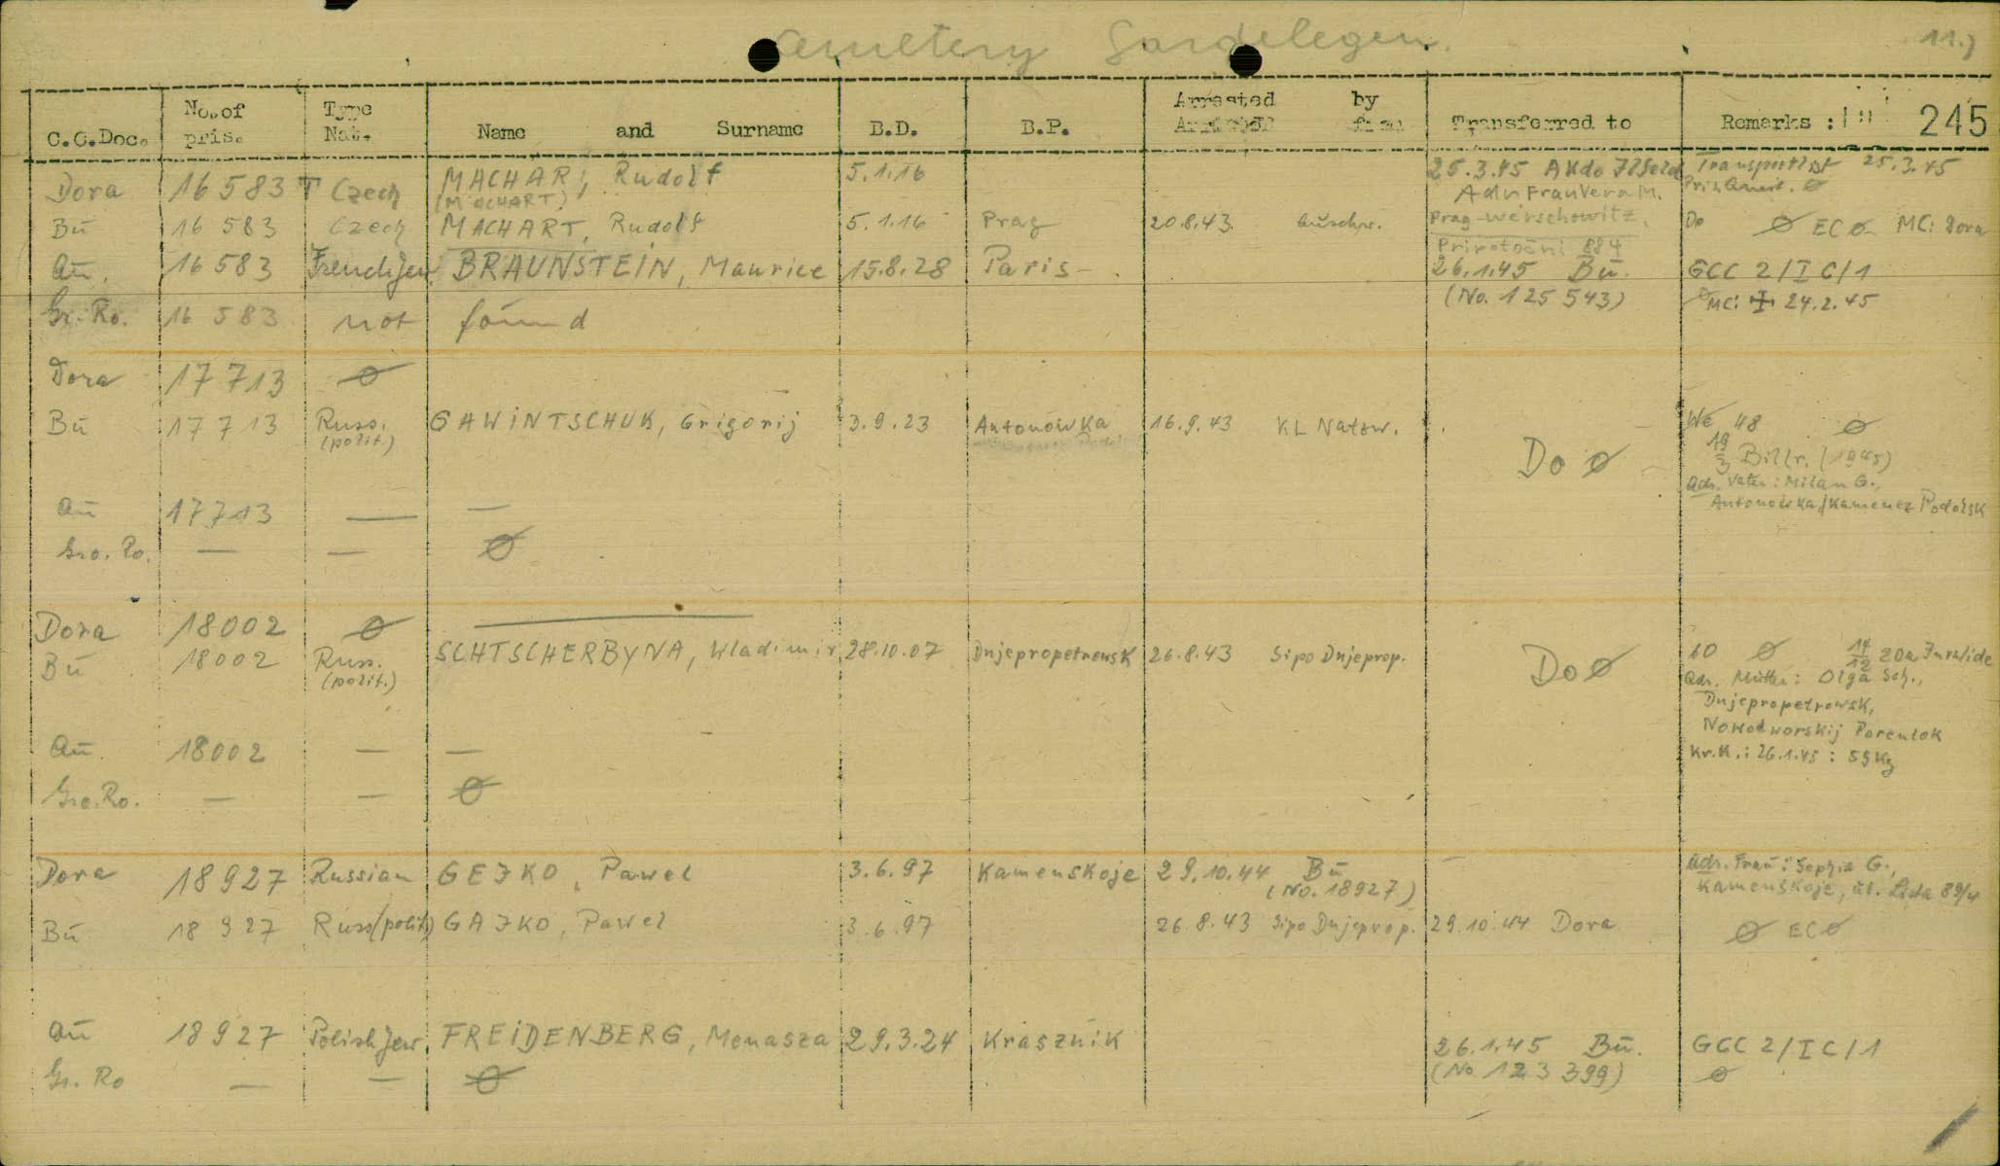 Cemetery Gardelegen. 11.)
C.C.Doc. No. of pris. Type Nat. Name and Surname B.D. B.P. Arrested by Transferred to Remarks : 245
Dora 16 583 T Czech MACHAR, Rudolf 5.1.16 25.3.45 AKdo Ilfeld Transportlist 25.3.45
(MACHART) Adr. Frau Vera M.
Bu 16 583 Czech MACHART, Rudolf 5.1.16 Prag 20.8.43. Prag-Werschowitz. Do Ø EC Ø MC: Dora
Privotočni 884
Au. 16 583 French Jew BRAUNSTEIN, Maurice 15.8.28 Paris - 26.1.45 Bu. GCC 2/I C/1
(No. 125 543) Ø MC: 24.2.45
Gr. Ro. 16 583 not found
Dora 17 713 Ø
Bu 17 713 Russ. GAWINTSCHUK, Grigorij 3.9.23 Antonowka 16.9.43 KL Natzw. We 48 Ø
(polit)
Do Ø
19/3 Billr. (1945)
Adr. Vater: Milan G.,
Antonowka/Kamenez Podolsk
Au 17713 — —
Gro. Ro. — — Ø
Dora 18002 Ø
Bu 18002 Russ. SCHTSCHERBYNA, Wladimir 28.10.07 Dnjepropetrowsk 26.8.43 Sipo Dnjeprop. Do Ø 60 Ø 14/12 20a Invalide
(polit.)
Adr. Mutter: Olga Sch.,
Dnjepropetrowsk,
Nowodworskij Pereulok
Kr.K.: 26.1.45 : 55 Kg
Au. 18002 — —
Gro. Ro. — — Ø
Dora 18927 Russian GEJKO, Pawel 3.6.97 Kamenskoje 29.10.44 Bu — Adr. Frau: Sophia G.,
(No. 18927) Kamenskoje, ul.
Bu 18 927 Russ(polit) GAJKO, Pawel 3.6.97 26.8.43 Sipo Dnjeprop. 29.10.44 Dora Ø EC Ø
Au 18927 Polish Jew. FREIDENBERG, Menasza 29.3.24 Krasznik 26.1.45 Bu. GCC 2/I C/1
(No 123 399) Ø
Gr. Ro — — Ø